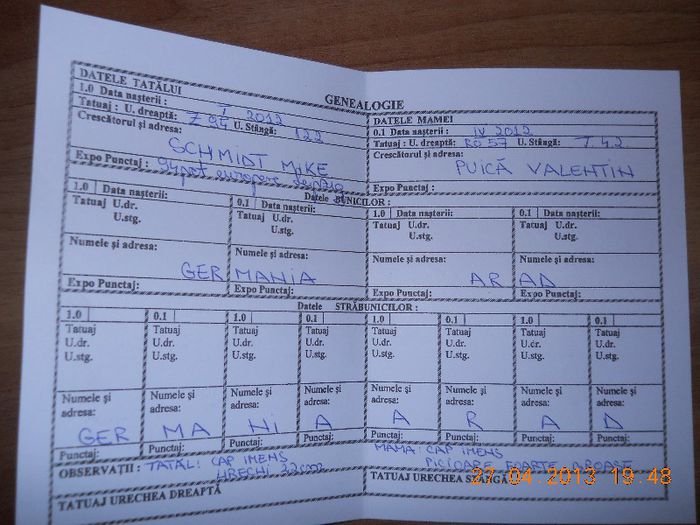 GENEALOGIE
DATELE TATĂLUI
1.0 Data nașterii: I 2012
Tatuaj: U. dreaptă: Z 94 U. Stângă: 122
Crescătorul și adresa:
SCHMIDT MIKE
Expo Punctaj: 94 pct europene
DATELE MAMEI
0.1 Data nașterii: IV 2012
Tatuaj: U. dreaptă: RO 57 U. Stângă: T.42
Crescătorul și adresa:
PUICĂ VALENTIN
Expo Punctaj:
Datele BUNICILOR:
1.0 Data nașterii: 0.1 Data nașterii: 1.0 Data nașterii: 0.1 Data nașterii:
Tatuaj U.dr. Tatuaj U.dr. Tatuaj U.dr. Tatuaj U.dr.
U.stg. U.stg. U.stg. U.stg.
Numele și adresa: Numele și adresa: Numele și adresa: Numele și adresa:
GERMANIA ARAD
Expo Punctaj: Expo Punctaj: Expo Punctaj: Expo Punctaj:
Datele STRĂBUNICILOR:
1.0 0.1 1.0 0.1 1.0 0.1 1.0 0.1
Tatuaj Tatuaj Tatuaj Tatuaj Tatuaj Tatuaj Tatuaj Tatuaj
U.dr. U.dr. U.dr. U.dr. U.dr. U.dr. U.dr. U.dr.
U.stg. U.stg. U.stg. U.stg. U.stg. U.stg. U.stg. U.stg.
Numele și Numele și Numele și Numele și Numele și Numele și Numele și Numele și
adresa: adresa: adresa: adresa: adresa: adresa: adresa: adresa:
GER MA NI A A R A D
Punctaj: Punctaj: Punctaj: Punctaj: Punctaj: Punctaj: Punctaj: Punctaj:
OBSERVAȚII: TATĂL: CAP IMENS
URECHI 22cm
MAMA: CAP IMENS
PICIOARE FOARTE
TATUAJ URECHEA DREAPTĂ
TATUAJ URECHEA STÂNGĂ
27.04.2013 19:48